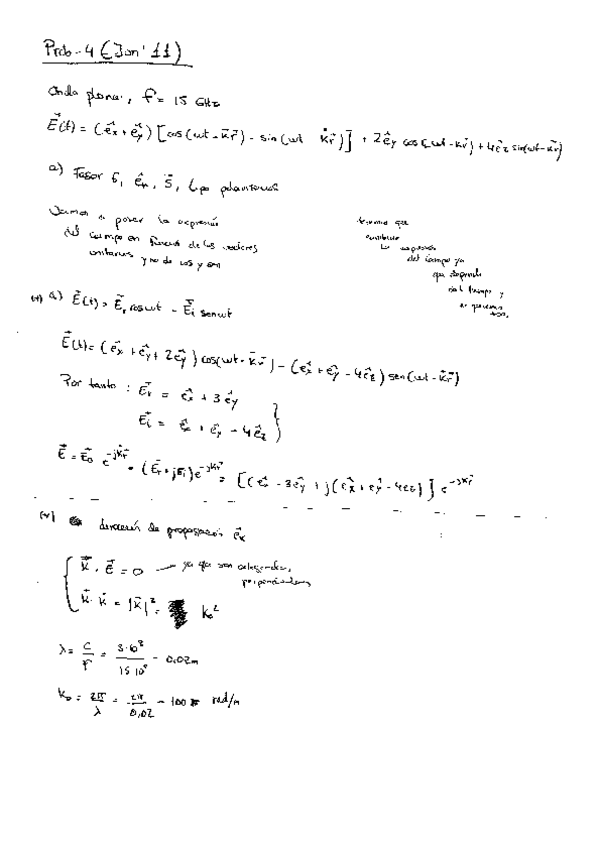 Prob-4 (Jun'11)
Onda plana, f = 15 GHz
E⃗(t) = (êx + êy) [cos(ωt - k̄r̄) - sin(ωt k̄r̄)] + 2êy cos(ωt - k̄r̄) + 4êz sin(ωt - k̄r̄)
a) Fasor E, êk, S⃗, tipo polarización
Vamos a poner la expresión
del campo en función de los vectores
unitarios y no de cos y sen
tenemos que
cambiar
la expresión
del campo ya
que depende
del tiempo y
no queremos
(*) a) E⃗(t) = E⃗r cos ωt - E⃗i sen ωt
E⃗(t) = (êx + êy + 2êy) cos(ωt - k̄r̄) - (êx + êy - 4êz) sen(ωt - k̄r̄)
Por tanto: E⃗r = êx + 3êy
E⃗i = êx + êy - 4êz
E⃗ = E⃗0 e^-jk̄r̄ = (E⃗r + jE⃗i) e^-jk̄r̄ = [(êx - 3êy + j(êx + êy - 4êz)] e^-jk̄r̄
(*) dirección de propagación êk
k⃗ · E⃗ = 0 — ya que son ortogonales,
perpendiculares
k⃗ · k⃗ = |k⃗|² = k0²
λ = c/f = 3·10⁸/15·10⁹ = 0,02m
k0 = 2π/λ = 2π/0,02 = 100π rad/m